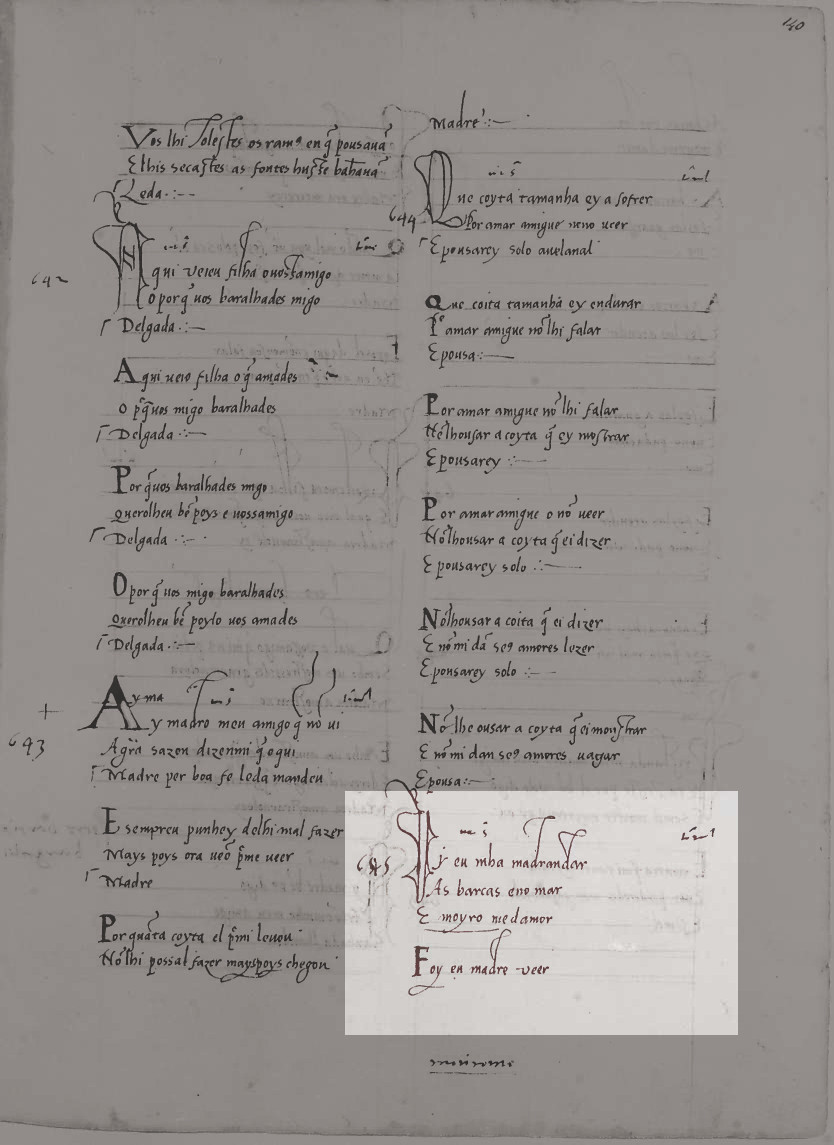 140
Vos lhi Tolestes os ram9 en q̃ pousauã
E lhis secastes as fontes hu sse bañauã
Leda
642
Aqui ueieu filha o uossamigo
O por q̃ uos baralhades migo
Delgada
Aqui ueio filha o q̃ amades
o p̃q̃ uos migo baralhades
Delgada
Por q̃ uos baralhades migo
querolheu bẽ poys e uossamigo
Delgada
O por q̃ uos migo baralhades
querolheu bẽ poylo uos amades
Delgada
643
Ay ma
Ay madro meu amigo q̃ nõ ui
A g̃ã sazon dizenmi q̃ e qui
Madre per boa fe leda mandeu
E sempreu punhey delhi mal fazer
Mays poys ora uẽo p̃me ueer
Madre
Por quãta coyta el p̃mi leuou
Nõ lhi possal fazer mays poys chegou
Madre
644
Que coyta tamanha ey a sofrer
Por amar amigue non o ueer
E pousarey solo auelanal
Que coita tamanha ey endurar
Pᵒ amar amigue nõ lhi falar
E pousa
Por amar amigue nõ lhi falar
Nẽ lhousar a coyta q̃ ey mostrar
E pousarey
Por amar amigue o nõ ueer
Nõ lhousar a coyta q̃ ei dizer
E pousarey solo
Nõ lhousar a coita q̃ ei dizer
E nõ mi dã se9 amores lezer
E pousarey solo
Nõ lhe ousar a coyta q̃ ei monstrar
E nõ mi dan se9 amores uagar
E pousa
645
Fuy eu mha madrandar
As barcas eno mar
E moyro me damor
Foy eu madre ueer